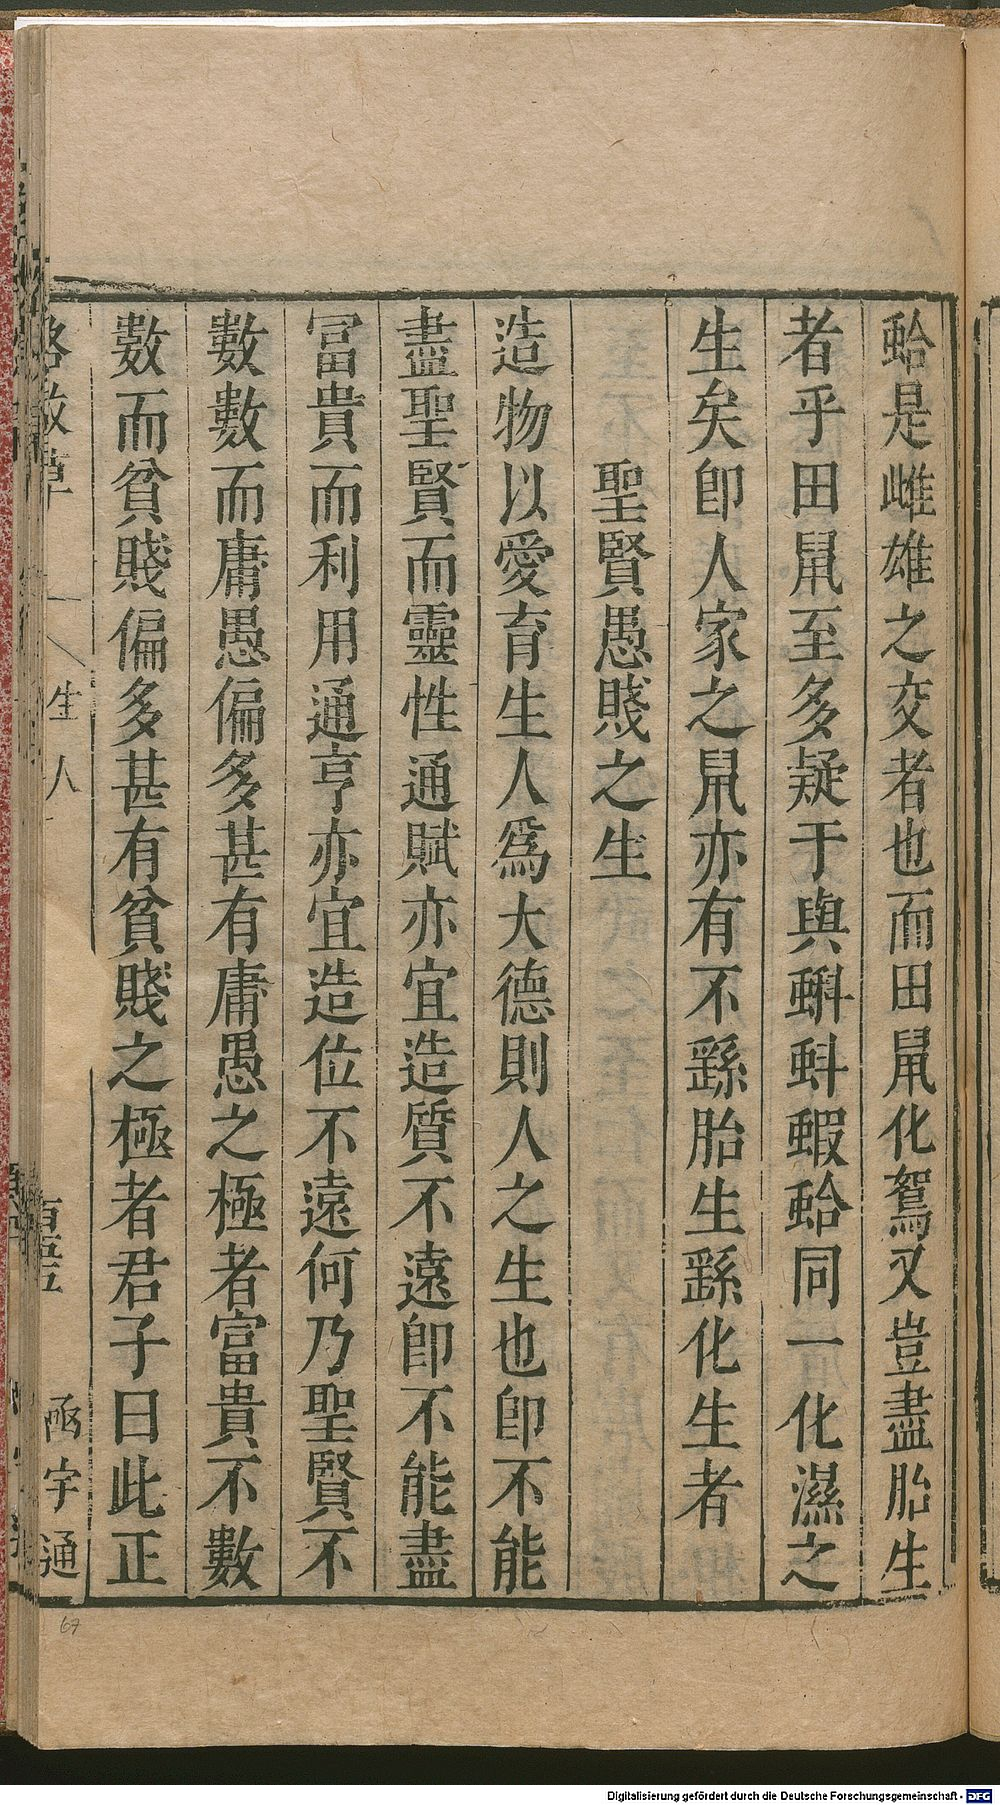 蛤是雌雄之交者也而田鼠化鴽又豈盡胎生
者乎田鼠至多疑于與蝌蚪蝦蛤同一化濕之
生矣卽人家之鼠亦有不繇胎生繇化生者
聖賢愚賤之生
造物以愛育生人爲大德則人之生也卽不能
盡聖賢而靈性通賦亦宜造質不遠卽不能盡
冨貴而利用通亨亦宜造位不遠何乃聖賢不
數數而庸愚偏多甚有庸愚之極者富貴不數
數而貧賤偏多甚有貧賤之極者君子曰此正
格致草 生人 百五五 函宇通
67
Digitalisierung gefördert durch die Deutsche Forschungsgemeinschaft - DFG